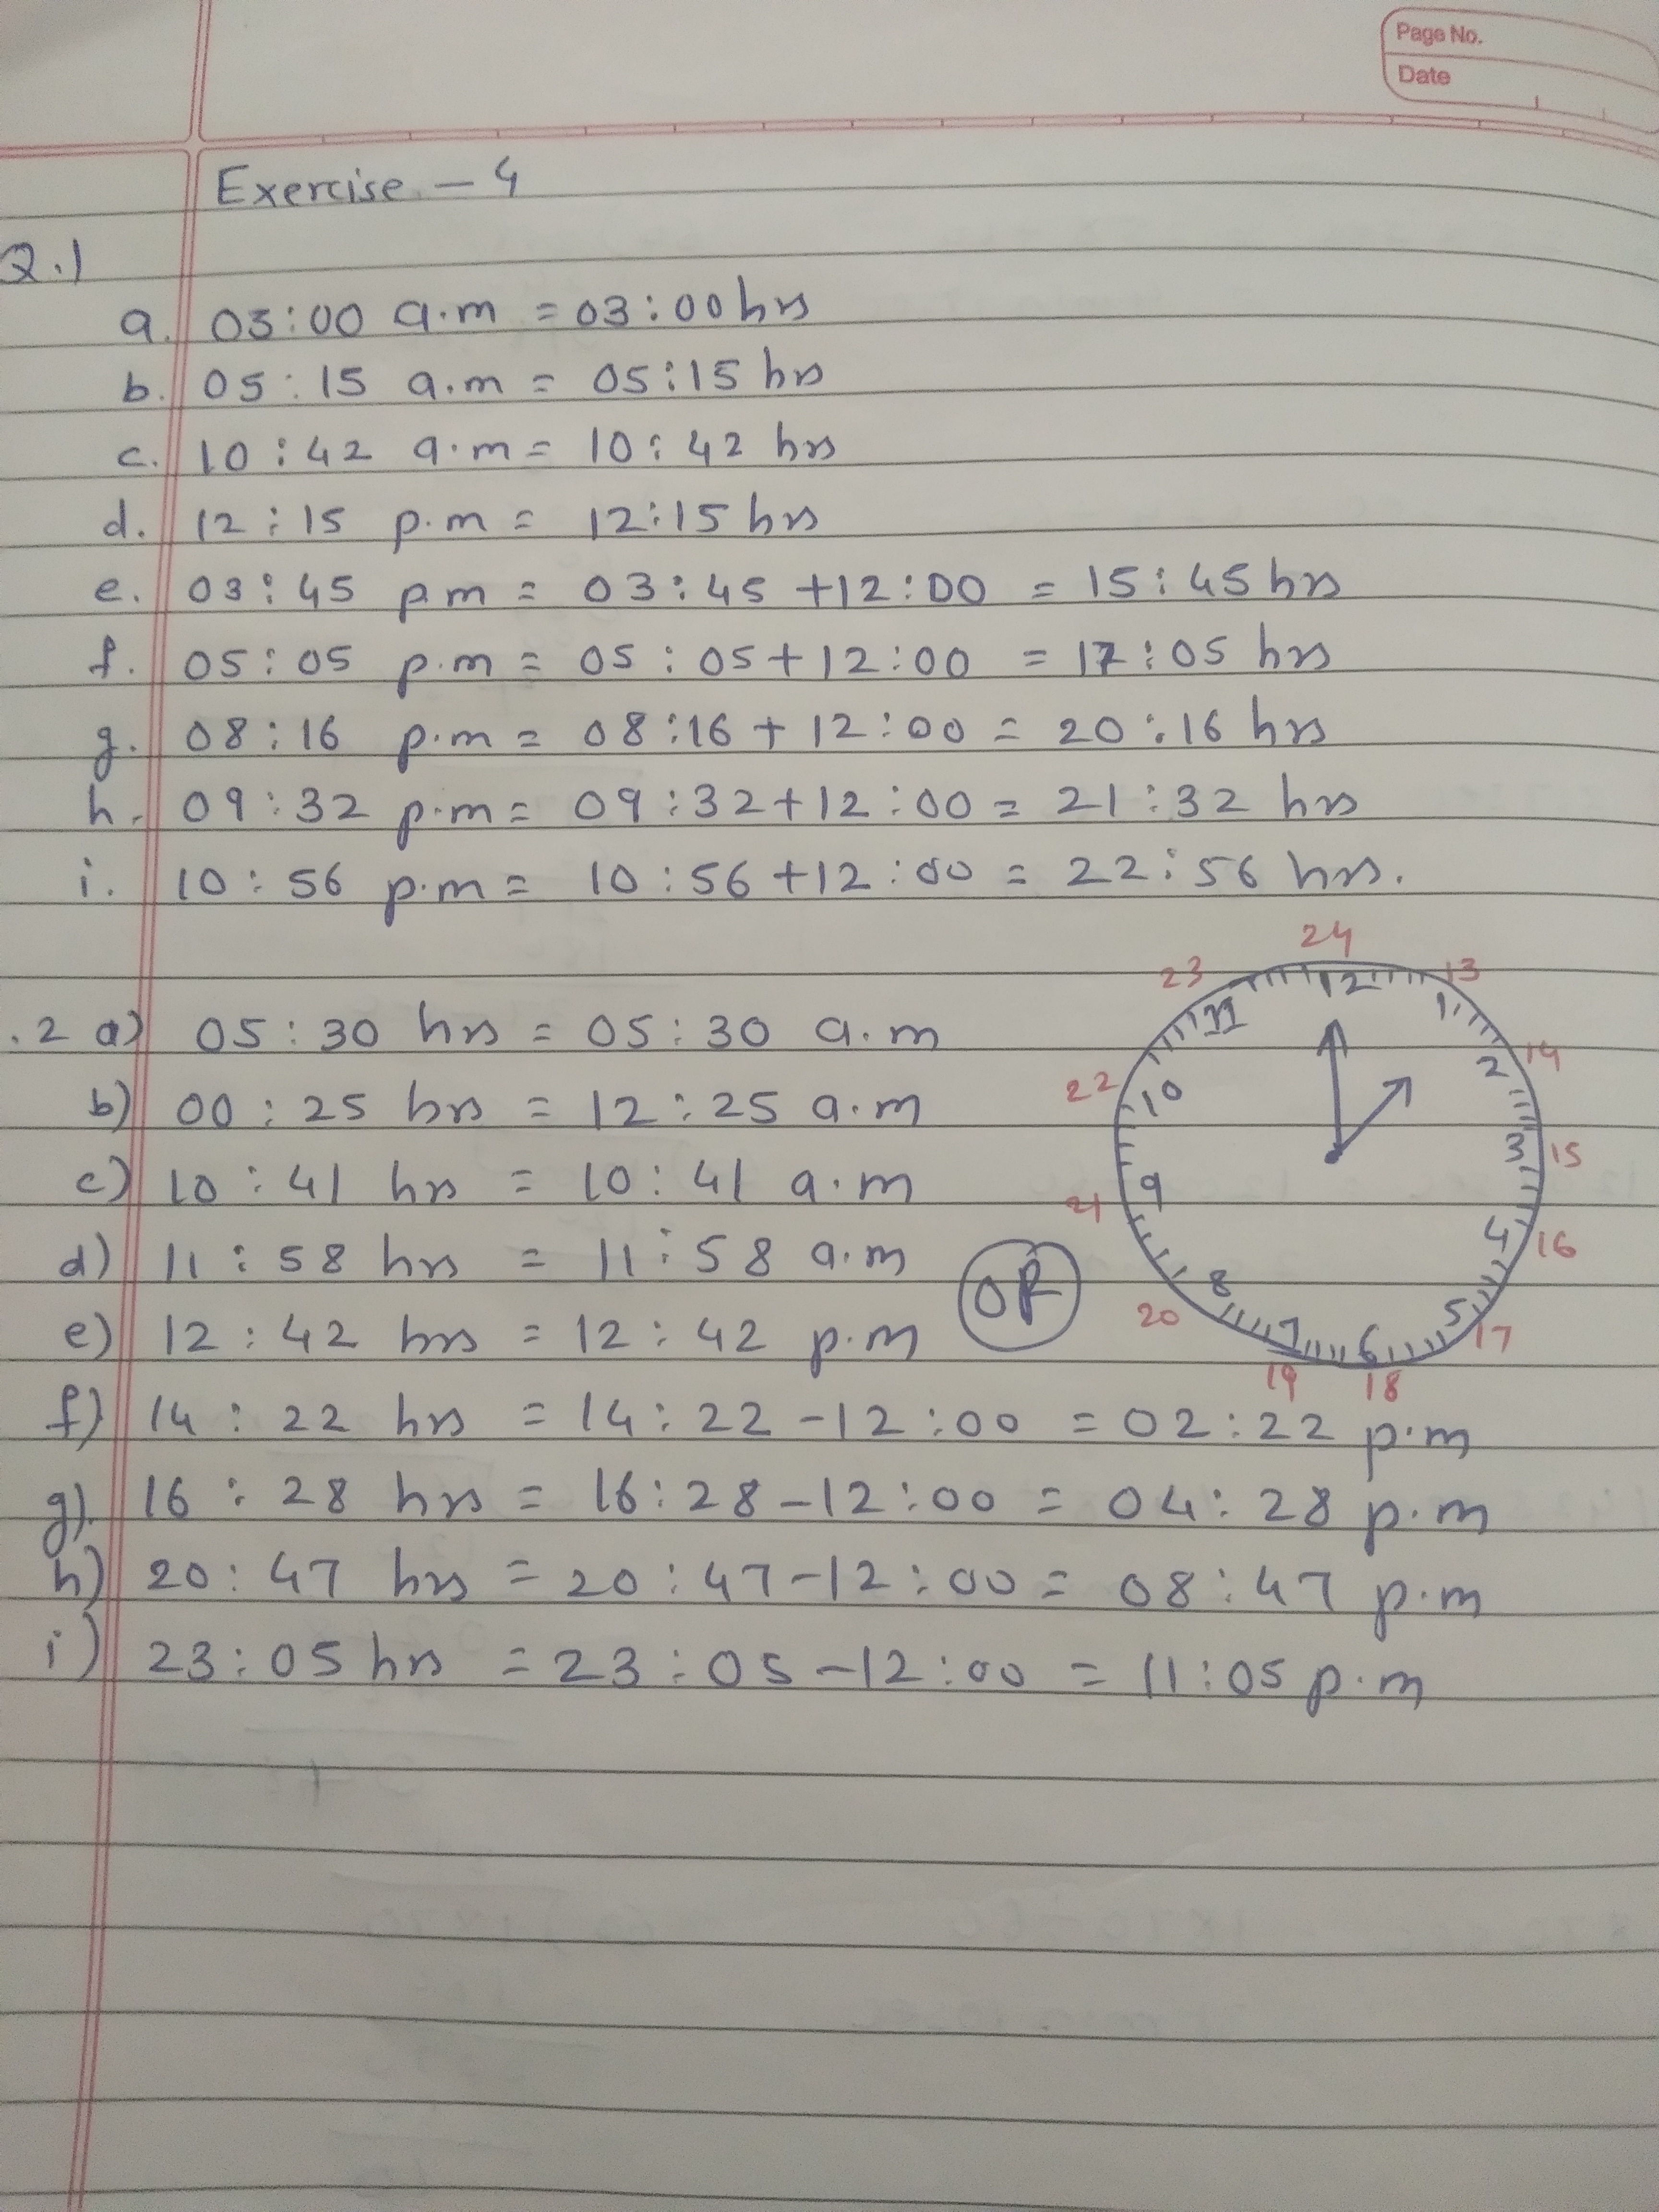 Page No.
Date
Exercise - 4
Q.1
a. 03:00 a.m = 03:00 hrs
b. 05:15 a.m = 05:15 hrs
c. 10:42 a.m = 10:42 hrs
d. 12:15 p.m = 12:15 hrs
e. 03:45 p.m = 03:45 +12:00 = 15:45 hrs
f. 05:05 p.m = 05:05+12:00 = 17:05 hrs
g. 08:16 p.m = 08:16 + 12:00 = 20:16 hrs
h. 09:32 p.m = 09:32+12:00 = 21:32 hrs
i. 10:56 p.m = 10:56 +12:00 = 22:56 hrs.
.2 a) 05:30 hrs = 05:30 a.m
b) 00:25 hrs = 12:25 a.m
c) 10:41 hrs = 10:41 a.m
d) 11:58 hrs = 11:58 a.m
e) 12:42 hrs = 12:42 p.m
OR
24 13 14 15 16 17 18 19 20 21 22 23
12 1 2 3 4 5 6 7 8 9 10 11
f) 14:22 hrs = 14:22 -12:00 = 02:22 p.m
g). 16:28 hrs = 16:28 -12:00 = 04:28 p.m
h) 20:47 hrs = 20:47 -12:00 = 08:47 p.m
i) 23:05 hrs = 23:05 -12:00 = 11:05 p.m